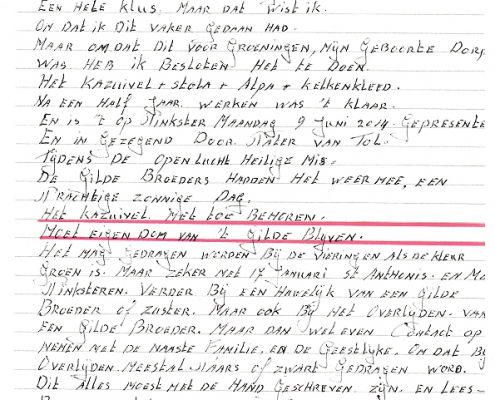 EEN HELE KLUS, MAAR DAT WIST IK.
OM DAT IK DIT VAKER GEDAAN HAD.
MAAR OM DAT DIT VOOR GROENINGEN, MYN GEBOORTE DORP
WAS HEB IK BESLOTEN HET TE DOEN.
HET KAZUIVEL + STOLA + ALPA + KELKENKLEED.
NA EEN HALF JAAR WERKEN WAS 't KLAAR.
EN IS 't OP PINKSTER MAANDAG 9 JUNI 2014. GEPRESENTE
EN IN GEZEGEND DOOR PATER VAN TOL.
TYDENS DE OPENLUCHT HEILIGE MIS.
DE GILDE BROEDERS HADDEN HET WEER MEE, EEN
PRACHTIGE ZONNIGE DAG.
HET KAZUIVEL MET TOE BEHOREN.
MOET EIGEN DOM VAN 't GILDE BLYVEN.
HET MAG GEDRAGEN WORDEN BIJ DE VIERINGEN ALS DE KLEUR
GROEN IS. MAAR ZEKER NET 17 JANUARI ST ANTHONIS. EN MA
PINKSTEREN. VERDER BIJ EEN HUWELIJK VAN EEN GILDE
BROEDER OF ZUSTER. MAAR OOK BIJ HET OVERLIJDEN. VAN
EEN GILDE BROEDER. MAAR DAN WEL EVEN CONTACT OP
NEMEN MET DE NAASTE FAMILIE, EN DE GEESTELYKE. OM DAT BY
OVERLYDEN MEESTAL PAARS OF ZWART GEDRAGEN WORD.
DIT ALLES MOEST MET DE HAND GESCHREVEN ZYN. EN LEES-